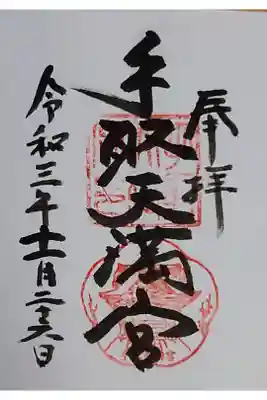 奉拝
手取天満宮
令和三年十二月二十六日